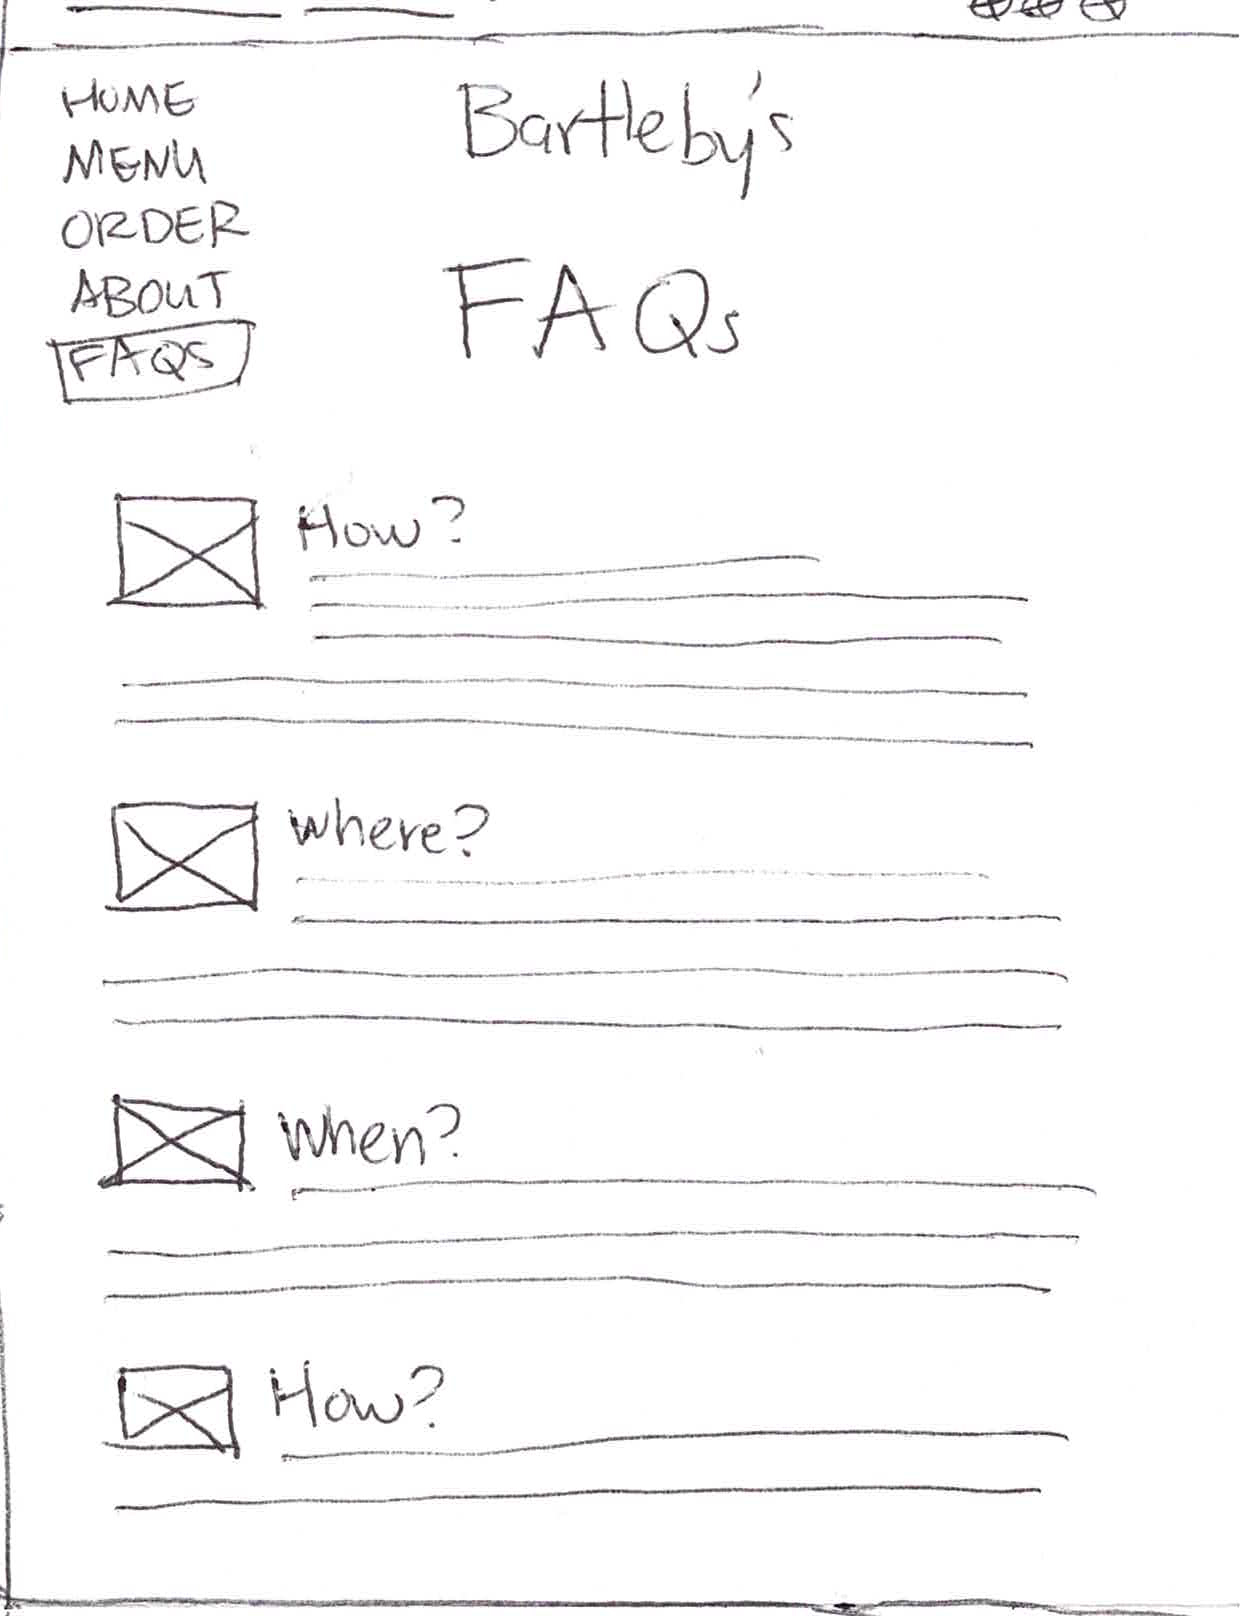 HOME
MENU
ORDER
ABOUT
FAQS
Bartleby's
FAQs
How?
Where?
When?
How?